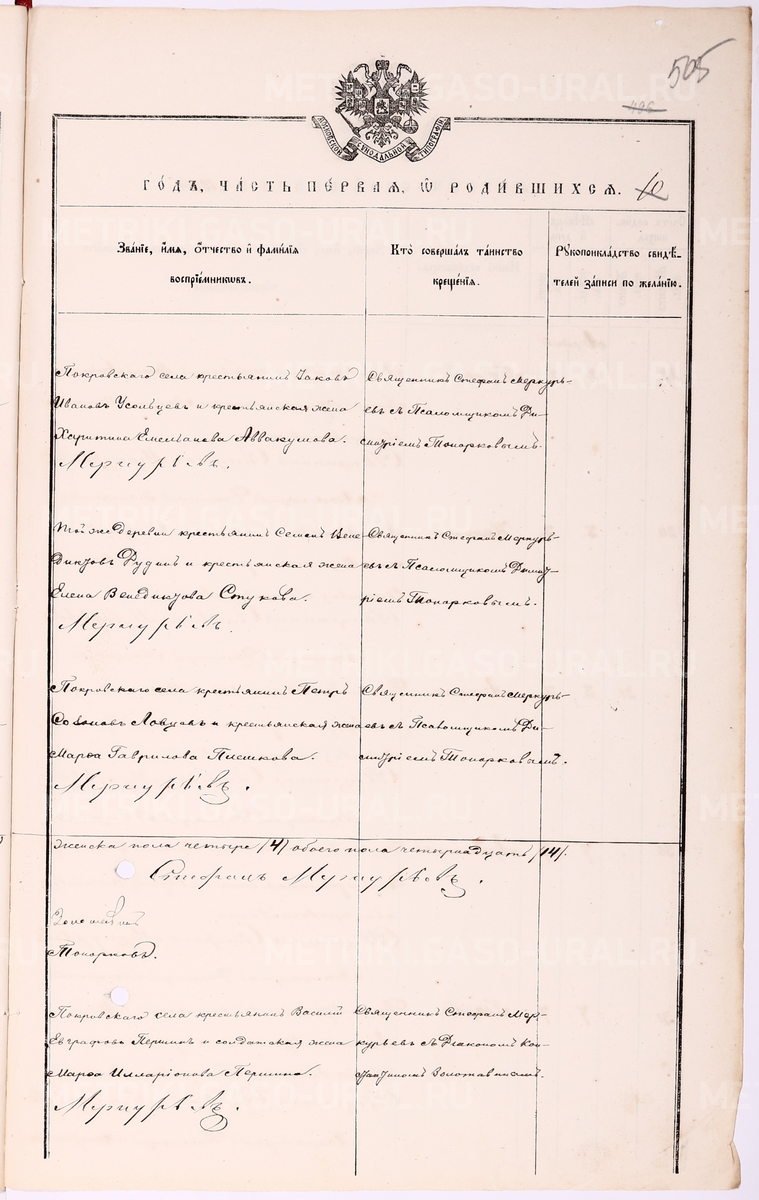 505
406
МОСКОВСКОЙ СѴНОДАЛЬНОЙ ТИПОГРАФІИ
ГО́ДЪ, ЧА́СТЬ ПЕ́РВАЯ, Ѿ РОДИ́ВШИХСЯ.
Зва́нїе, и҆́мя, ѻ҆́тчество и҆ фами́лїя
воспрїе́мникѡвъ.
Кто̀ соверша́лъ та́инство
креще́нїя.
Рꙋкоприкла́дство свидѣ́-
телей за́писи по жела́нїю.
Покровскаго села крестьянинъ Іаковъ
Ивановъ Усольцевъ и крестьянская жена
Харитина Емельянова Аввакумова.
Меркурьевъ.
Священникъ Стефанъ Меркурь-
евъ съ Псаломщикомъ Ди-
митріемъ Топорковымъ.
Той же деревни крестьянинъ Семенъ Вене-
диктовъ Рудинъ и крестьянская жена
Елена Венедиктова Стукова.
Меркурьевъ.
Священникъ Стефанъ Меркурь-
евъ съ Псаломщикомъ Димит-
ріемъ Топорковымъ.
Покровскаго села крестьянинъ Петръ
Созоновъ Ловцовъ и крестьянская жена
Марѳа Гаврилова Пешкова.
Меркурьевъ.
Священникъ Стефанъ Меркурь-
евъ съ Псаломщикомъ Ди-
митріемъ Топорковымъ.
Женска пола четыре /4/ обоего пола четырнадцать /14/.
Стефанъ Меркурьевъ.
Топорковъ.
Покровскаго села крестьянинъ Василій
Евграфовъ Першинъ и солдатская жена
Марѳа Илларіонова Першина.
Меркурьевъ.
Священникъ Стефанъ Мер-
курьевъ съ Діакономъ Кон-
стантиномъ Золотавинымъ.
METRIKI.GASO-URAL.RU